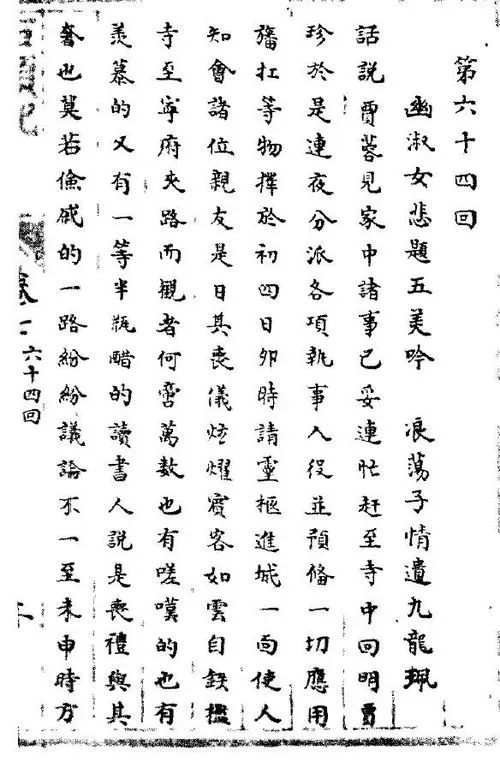 第六十四回
幽淑女悲題五美吟 浪蕩子情遺九龍珮
話說賈蓉見家中諸事已妥連忙赶至寺中回明賈
珍於是連夜分派各項執事人役並預備一切應用
旛扛等物擇於初四日卯時請靈柩進城一面使人
知會諸位親友是日其喪儀炫耀賓客如雲自鉄檻
寺至寧府夾路而觀者何啻萬数也有嗟嘆的也有
羡慕的又有一等半瓶醋的讀書人說是喪禮與其
奢也莫若儉戚的一路紛紛議論不一至未申時方
六十四回